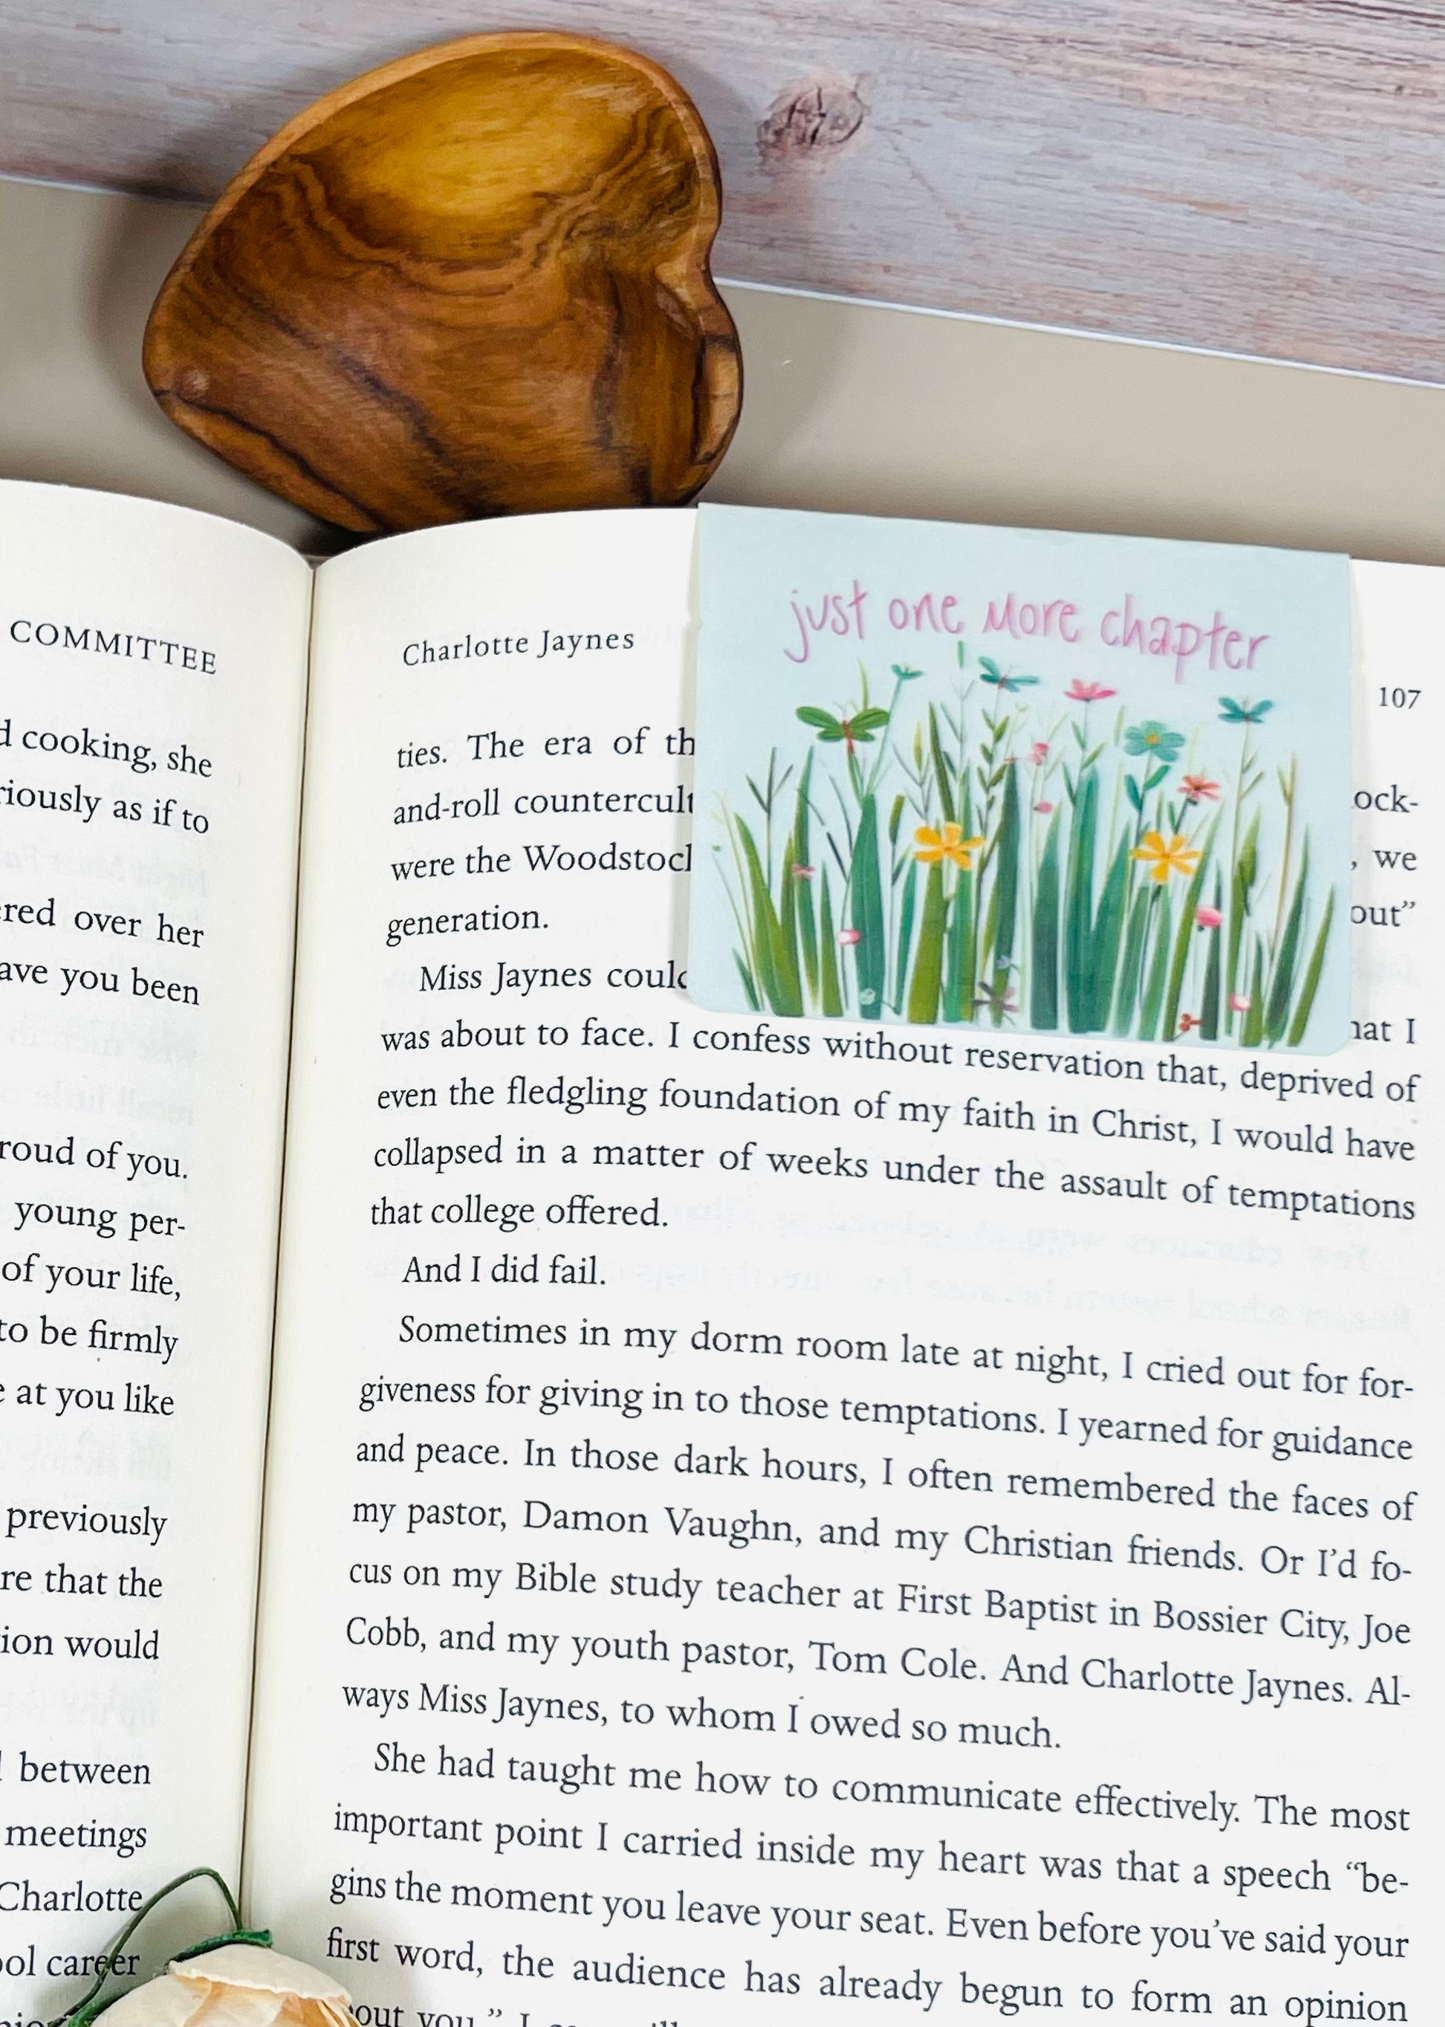 COMMITTEE
cooking, she
as if to
over her
you been
of you.
young per-
of your life,
to be firmly
at you like
previously
that the
would
between
meetings
Charlotte
career
just one more chapter
Charlotte Jaynes
107
ties. The era of
and-roll
were the
, we
generation.
Miss Jaynes
I
was about to face. I confess without reservation that, deprived of
even the fledgling foundation of my faith in Christ, I would have
collapsed in a matter of weeks under the assault of temptations
that college offered.
And I did fail.
Sometimes in my dorm room late at night, I cried out for for-
giveness for giving in to those temptations. I yearned for guidance
and peace. In those dark hours, I often remembered the faces of
my pastor, Damon Vaughn, and my Christian friends. Or I'd fo-
cus on my Bible study teacher at First Baptist in Bossier City, Joe
Cobb, and my youth pastor, Tom Cole. And Charlotte Jaynes. Al-
ways Miss Jaynes, to whom I owed so much.
She had taught me how to communicate effectively. The most
important point I carried inside my heart was that a speech “be-
gins the moment you leave your seat. Even before you've said your
first word, the audience has already begun to form an opinion
you.” I